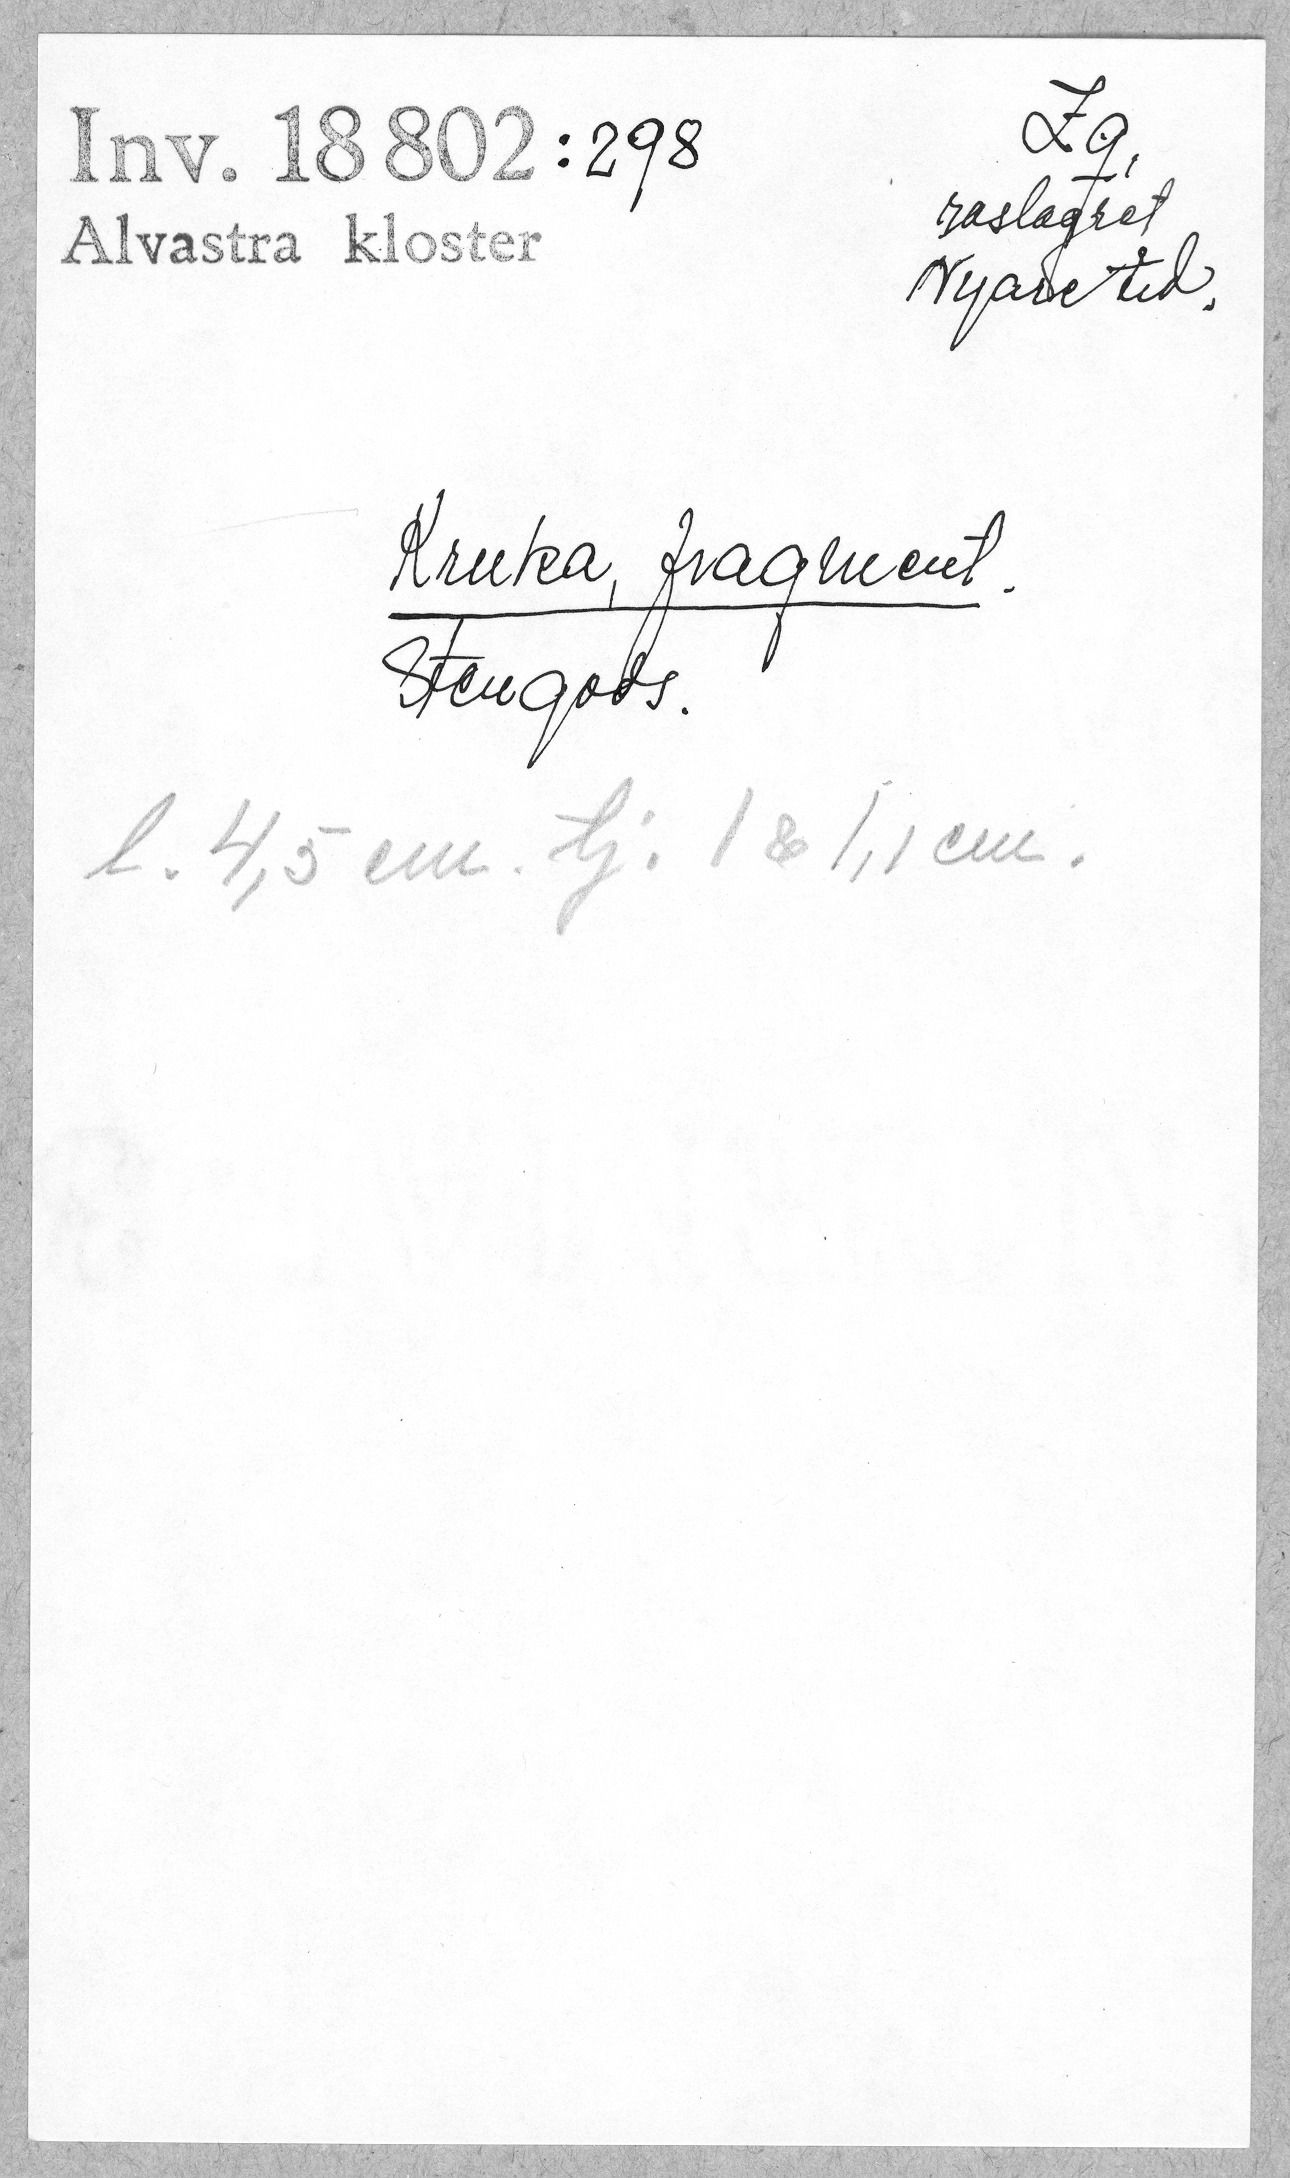 Inv. 18 802:298
Alvastra kloster
Z9,
raslagret
Nyare tid.
Kruka, fragment.
Stengods.
l. 4,5 cm. tj: 1 & 1,1 cm.